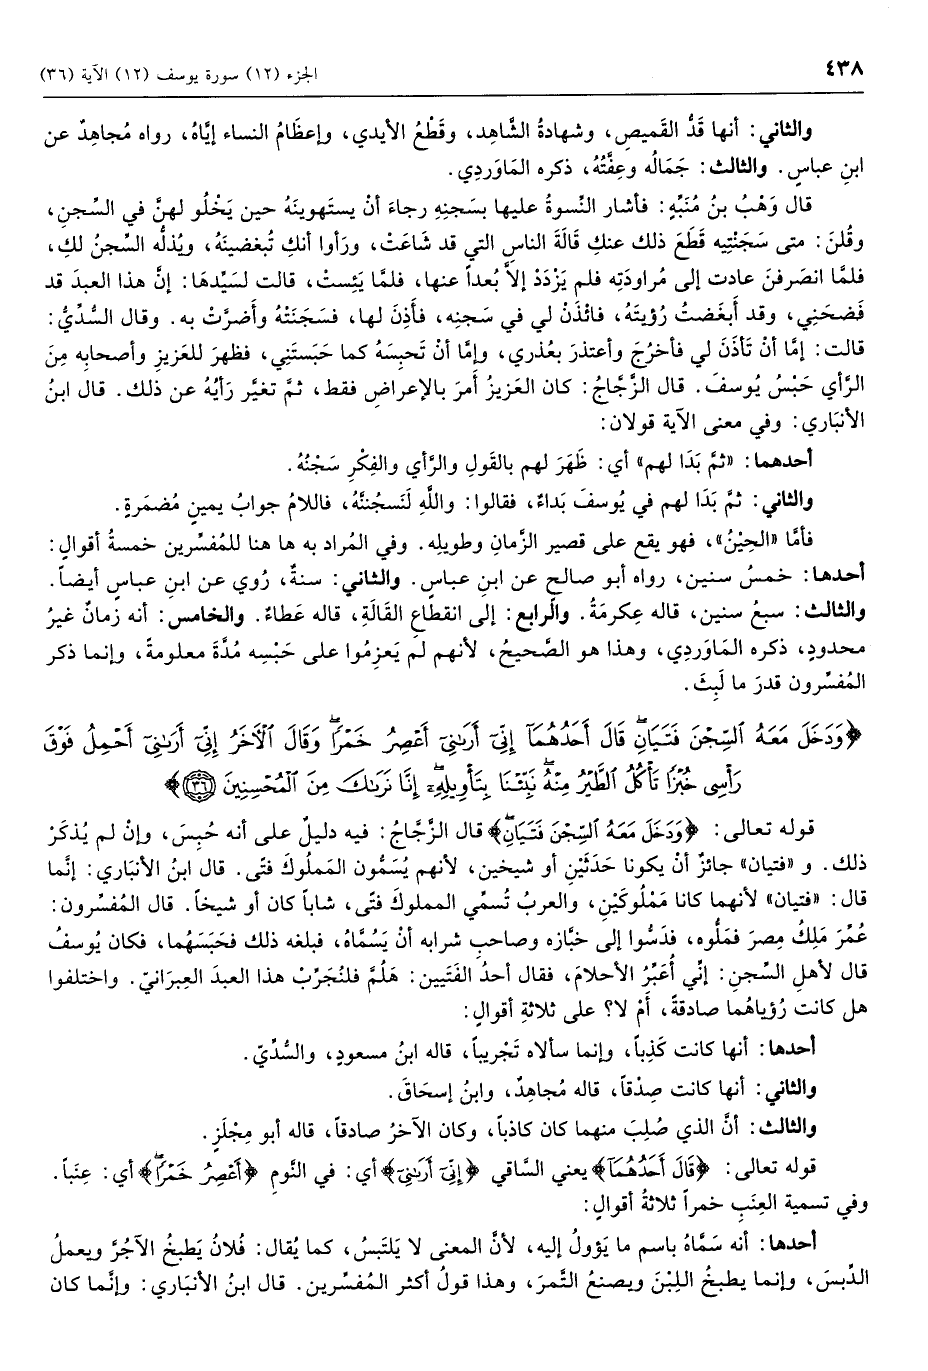 ٤٣٨
الجزء (١٢) سورة يوسف (١٢) الآية (٣٦)
والثاني: أنها قَدُّ القَميصِ، وشهادةُ الشَّاهِد، وقَطْعُ الأيدي، وإعظَامُ النساء إيَّاهُ، رواه مُجاهِدٌ عن
ابنِ عباسٍ. والثالث: جَمَالُه وعِفَّتُهُ، ذكره المَاوَردِي.
قال وَهْبُ بنُ مُنَبِّهِ: فأشار النِّسوةُ عليها بسَجنِهِ رجاءَ أنْ يستهوينَهُ حين يَخْلُو لهنَّ في السِّجنِ،
وقُلنَ: متى سَجَنْتِيه قَطَعَ ذلك عنكِ قَالَةَ الناسِ التي قد شَاعَتْ، ورَأوا أنكِ تُبغضينَهُ، ويُذلُّه السِّجنُ لكِ،
فلمَّا انصَرفنَ عادت إلى مُراودَتِه فلم يَزْدَدْ إلاَّ بُعداً عنها، فلمَّا يَئِستْ، قالت لسَيِّدهَا: إنَّ هذا العبدَ قد
فَضحَنِي، وقد أَبغَضتُ رُؤيتَهُ، فائذَنْ لي في سَجنِه، فأَذِنَ لها، فسَجَنَتْهُ وأضرَّتْ به. وقال السُّدِّيُّ:
قالت: إمَّا أنْ تأذَنَ لي فأخرُجَ وأعتذرَ بعُذري، وإمَّا أنْ تَحبِسَهُ كما حَبَستَنِي، فظهرَ للعَزيزِ وأصحابِه مِنَ
الرَّأي حَبْسُ يُوسفَ. قال الزَّجَّاجُ: كان العَزيزُ أَمرَ بالإعراضِ فقط، ثمَّ تغيَّر رَأيُهُ عن ذلك. قال ابنُ
الأنبَاري: وفي معنى الآية قولان:
أحدهما: «ثمَّ بَدَا لهم» أي: ظَهَرَ لهم بالقَولِ والرَّأي والفِكْرِ سَجْنُهُ.
والثاني: ثمَّ بَدَا لهم في يُوسفَ بَداءٌ، فقالوا: واللَّهِ لَنَسجُننَّهُ، فاللامُ جوابُ يمينٍ مُضمَرةٍ.
فأمَّا «الحِيْنُ»، فهو يقع على قصير الزَّمانِ وطويلِه. وفي المُراد به ها هنا للمُفسِّرين خمسةُ أقوالٍ:
أحدها: خمسُ سنين، رواه أبو صالحٍ عن ابنِ عباسٍ. والثاني: سنةٌ، رُوي عن ابنِ عباسٍ أيضاً.
والثالث: سبعُ سنين، قاله عِكرمَةُ. والرابع: إلى انقطَاعِ القَالَةِ، قاله عَطاءٌ. والخامس: أنه زمانٌ غيرُ
محدودٍ، ذكره المَاوَردِي، وهذا هو الصَّحيحُ، لأنهم لم يَعزِمُوا على حَبْسِه مُدَّةً معلومةً، وإنما ذكر
المُفسِّرون قدرَ ما لَبِثَ.
﴿وَدَخَلَ مَعَهُ ٱلسِّجْنَ فَتَيَانِۖ قَالَ أَحَدُهُمَآ إِنِّيٓ أَرَىٰنِيٓ أَعْصِرُ خَمْرًاۖ وَقَالَ ٱلْآخَرُ إِنِّيٓ أَرَىٰنِيٓ أَحْمِلُ فَوْقَ
رَأْسِي خُبْزًا تَأْكُلُ ٱلطَّيْرُ مِنْهُۖ نَبِّئْنَا بِتَأْوِيلِهِۦٓۖ إِنَّا نَرَىٰكَ مِنَ ٱلْمُحْسِنِينَ ﴿٣٦﴾﴾
قوله تعالى: ﴿وَدَخَلَ مَعَهُ ٱلسِّجْنَ فَتَيَانِۖ﴾ قال الزَّجَّاجُ: فيه دليلٌ على أنه حُبِسَ، وإنْ لم يُذكَرْ
ذلك. و «فتيان» جائزٌ أنْ يكونا حَدَثَيْنِ أو شيخين، لأنهم يُسَمُّون المَملُوكَ فتًى. قال ابنُ الأنباري: إنَّما
قال: «فتيان» لأنهما كانا مَمْلُوكَيْنِ، والعربُ تُسمِّي المملوكَ فتًى، شاباً كان أو شيخاً. قال المُفسِّرون:
عُمِّرَ مَلِكُ مِصرَ فمَلُّوه، فدَسُّوا إلى خبَّازه وصاحبِ شرابه أنْ يَسُمَّاهُ، فبلغه ذلك فحَبَسَهُما، فكان يُوسفُ
قال لأهلِ السِّجنِ: إنِّي أُعَبِّرُ الأحلامَ، فقال أحدُ الفَتَيين: هَلُمَّ فلنُجَرِّبْ هذا العبدَ العِبرَانيّ. واختلفوا
هل كانت رُؤياهُما صادقةً، أَمْ لا؟ على ثلاثةِ أقوالٍ:
أحدها: أنها كانت كَذِباً، وإنما سألاه تَجْريباً، قاله ابنُ مسعودٍ، والسُّدِّيّ.
والثاني: أنها كانت صِدْقاً، قاله مُجاهِدٌ، وابنُ إسحَاقَ.
والثالث: أنَّ الذي صُلِبَ منهما كان كاذباً، وكان الآخرُ صادقاً، قاله أبو مِجْلَزٍ.
قوله تعالى: ﴿قَالَ أَحَدُهُمَآ﴾ يعني السَّاقي ﴿إِنِّيٓ أَرَىٰنِيٓ﴾ أي: في النَّومِ ﴿أَعْصِرُ خَمْرًاۖ﴾ أي: عِنَباً.
وفي تسمية العِنَبِ خمراً ثلاثةُ أقوالٍ:
أحدها: أنه سَمَّاهُ باسم ما يَؤولُ إليه، لأنَّ المعنى لا يَلتَبِسُ، كما يُقال: فُلانٌ يَطبخُ الآجُرَّ ويعملُ
الدِّبسَ، وإنما يطبخُ اللِبْنَ ويصنعُ التَّمرَ، وهذا قولُ أكثرِ المُفسِّرين. قال ابنُ الأنبَاري: وإنَّما كان